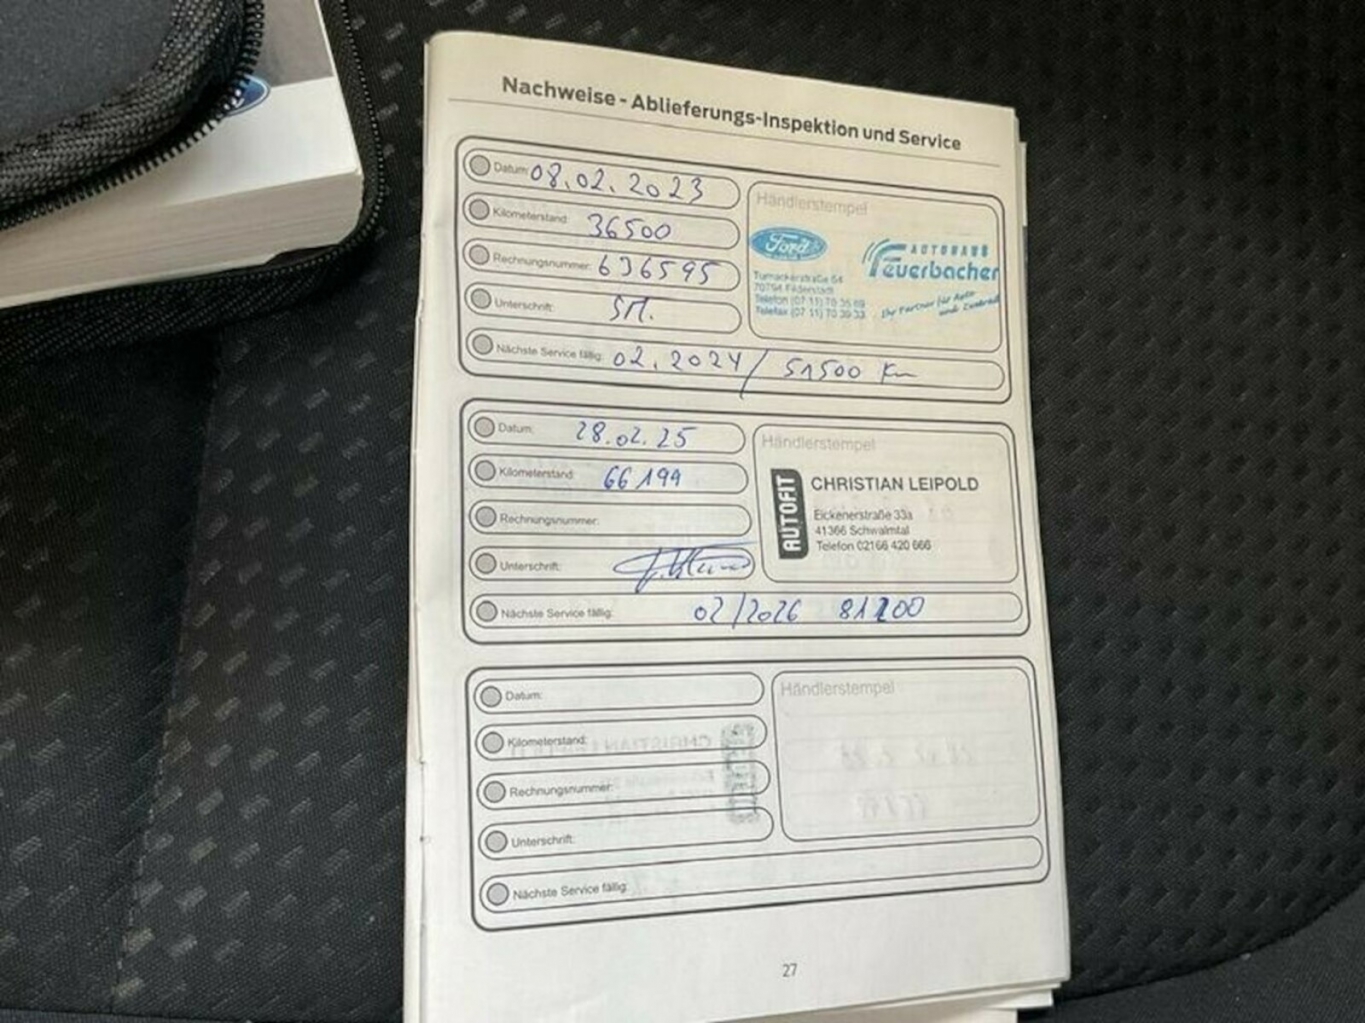 Nachweise - Ablieferungs-Inspektion und Service
Datum: 08.02.2023
Kilometerstand: 36500
Rechnungsnummer: 636595
Unterschrift: SM.
Nächste Service fällig: 02.2024 / 51500 Km
Händlerstempel
Ford
AUTOHAUS
Feuerbacher
70794 Filderstadt
Ihr Partner für Auto
Datum: 28.02.25
Kilometerstand: 66199
Rechnungsnummer:
Unterschrift:
Nächste Service fällig: 02/2026 81200
Händlerstempel
AUTOFIT
CHRISTIAN LEIPOLD
Eickenerstraße 33a
41366 Schwalmtal
Telefon 02166 420 666
Datum:
Kilometerstand:
Rechnungsnummer:
Unterschrift:
Nächste Service fällig:
Händlerstempel
27